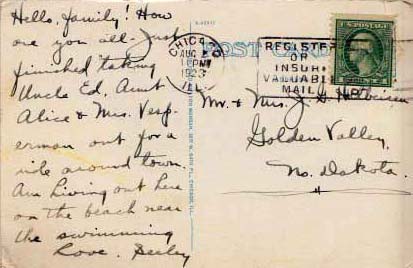 Hello, family! How
are you all - Just
finished taking
Uncle Ed, Aunt
Alice & Mrs.
erman out for a
ride around town.
Am living out here
on the beach near
the swimming
Love.
POST CARD
CHICAGO
AUG
PM
1923
ILL
REGISTER
OR
INSURE
VALUABLE
MAIL
Mr. & Mrs. J.
Golden Valley,
No. Dakota.